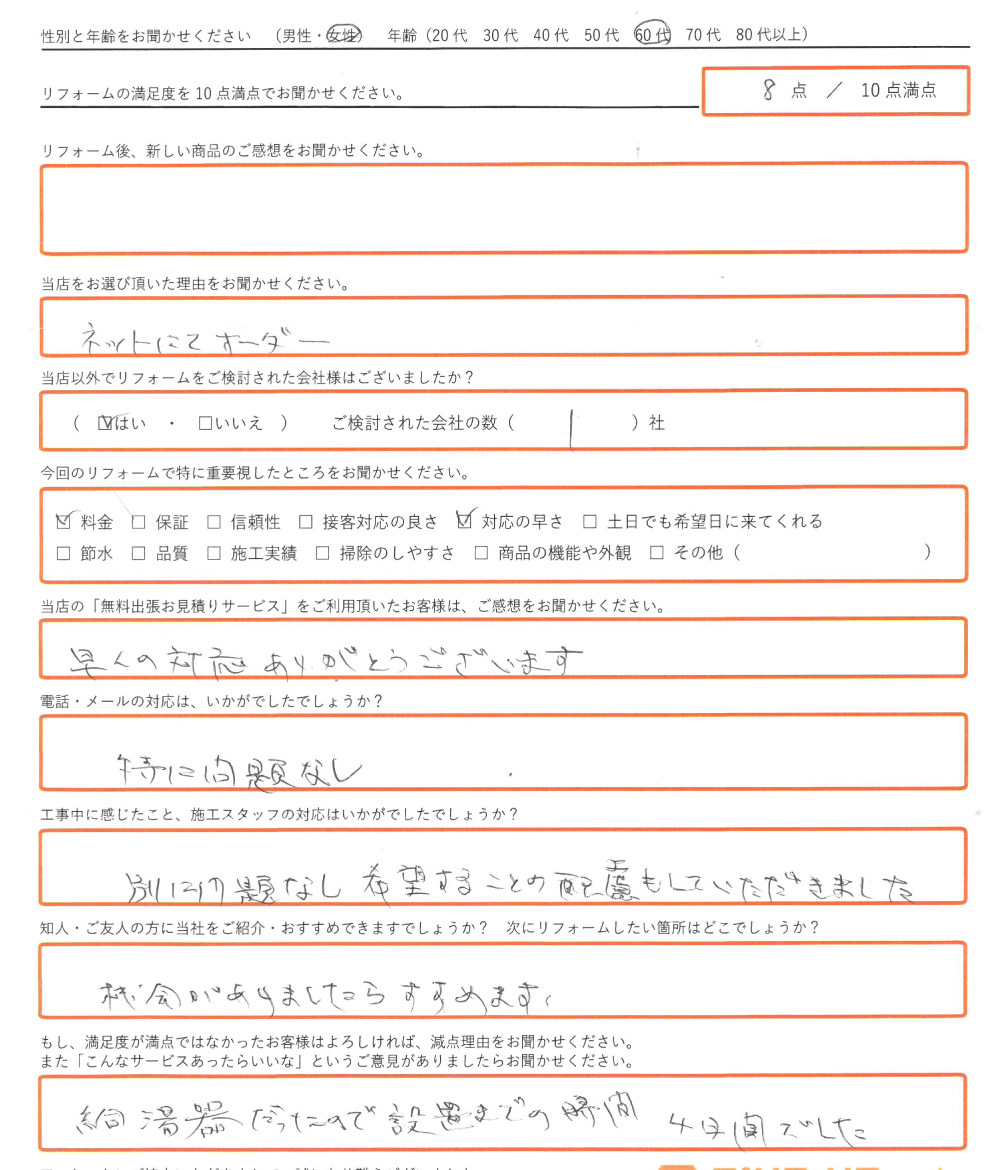 性別と年齢をお聞かせください （男性・女性） 年齢（20代 30代 40代 50代 60代 70代 80代以上）
リフォームの満足度を10点満点でお聞かせください。
8 点 ／ 10点満点
リフォーム後、新しい商品のご感想をお聞かせください。
当店をお選び頂いた理由をお聞かせください。
ネットにてオーダー
当店以外でリフォームをご検討された会社様はございましたか？
（ ☑はい ・ □いいえ ） ご検討された会社の数（ 1 ）社
今回のリフォームで特に重要視したところをお聞かせください。
☑ 料金 □ 保証 □ 信頼性 □ 接客対応の良さ ☑ 対応の早さ □ 土日でも希望日に来てくれる
□ 節水 □ 品質 □ 施工実績 □ 掃除のしやすさ □ 商品の機能や外観 □ その他（ ）
当店の「無料出張お見積りサービス」をご利用頂いたお客様は、ご感想をお聞かせください。
早々の対応ありがとうございます
電話・メールの対応は、いかがでしたでしょうか？
特に問題なし
工事中に感じたこと、施工スタッフの対応はいかがでしたでしょうか？
別に問題なし 希望することの配慮もしていただきました
知人・ご友人の方に当社をご紹介・おすすめできますでしょうか？ 次にリフォームしたい箇所はどこでしょうか？
機会がありましたらすすめます。
もし、満足度が満点ではなかったお客様はよろしければ、減点理由をお聞かせください。
また「こんなサービスあったらいいな」というご意見がありましたらお聞かせください。
給湯器だったので設置までの時間 4日間でした